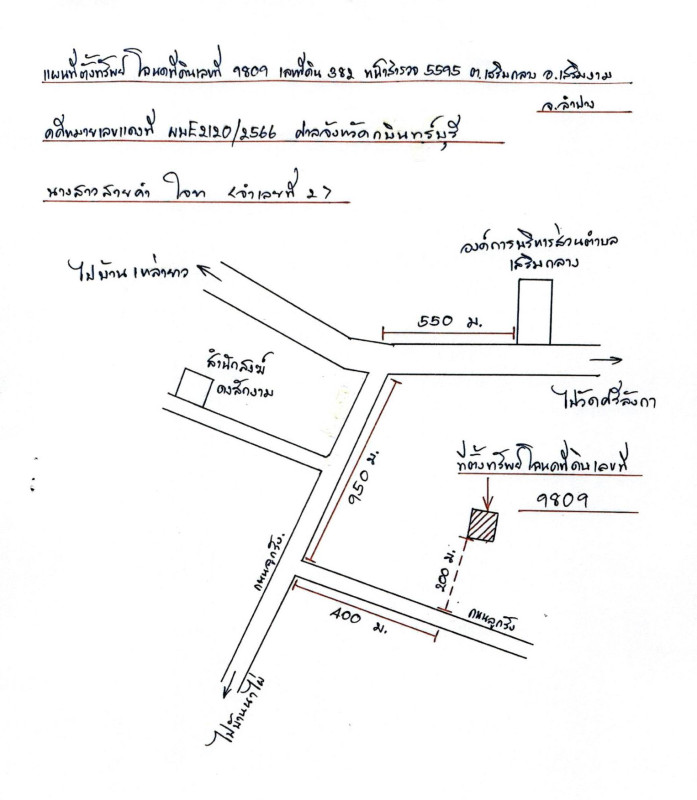 แผนที่ตั้งทรัพย์ โฉนดที่ดินเลขที่ 9809 เลขที่ดิน 382 หน้าสำรวจ 5595 ต.เสริมกลาง อ.เสริมงาม
จ.ลำปาง
คดีหมายเลขแดงที่ ผบE2120/2566 ศาลจังหวัดกบินทร์บุรี
นางสาวสายคำ (จำเลขที่ 2)
องค์การบริหารส่วนตำบล
เสริมกลาง
ไปบ้านเหล่ายาว
550 ม.
สำนักสงฆ์
ดงสักงาม
ไปวัดศรีลังกา
950 ม.
ที่ตั้งทรัพย์โฉนดที่ดินเลขที่
9809
200 ม.
ถนนลูกรัง
400 ม.
ถนนลูกรัง
ไปบ้านนาไผ่